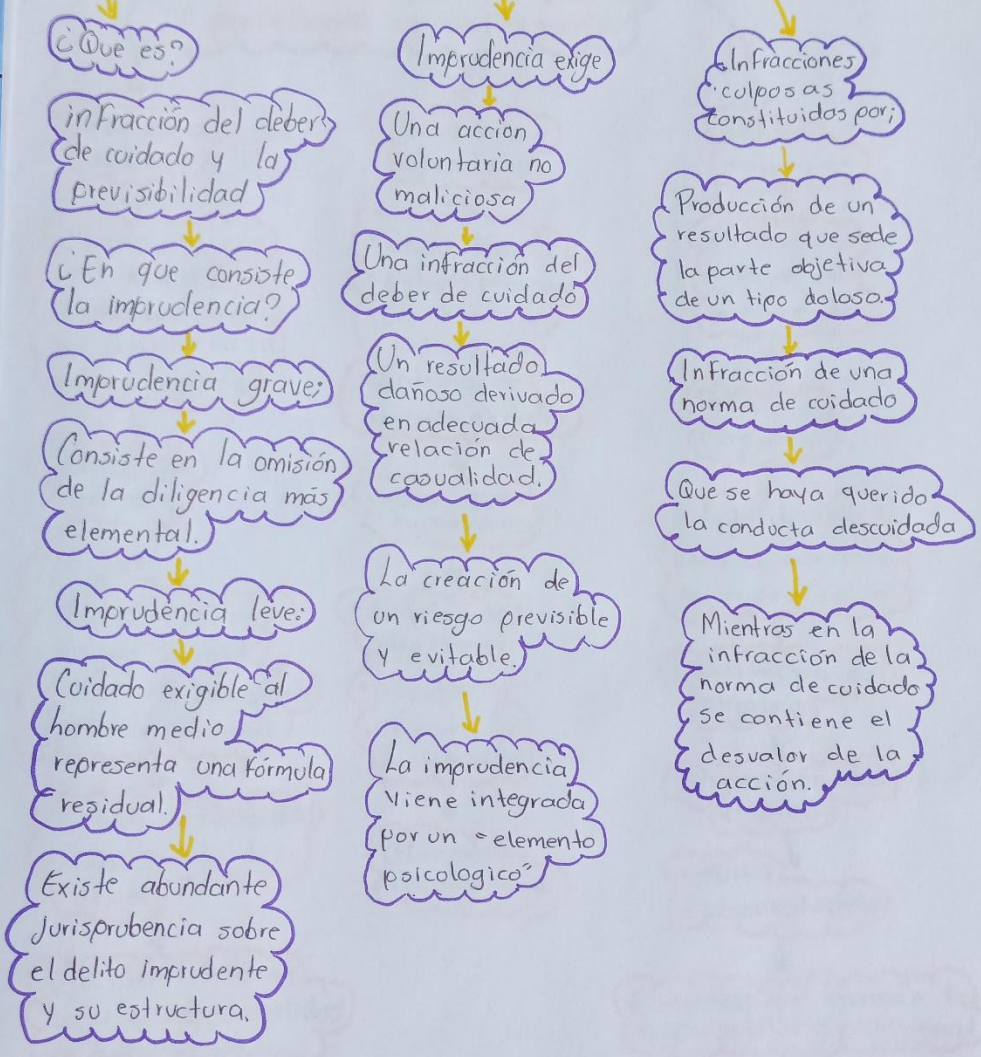 ¿Que es?
infracción del deber
de cuidado y la
previsibilidad
¿En que consiste
la imprudencia?
Imprudencia grave;
Consiste en la omisión
de la diligencia más
elemental.
Imprudencia leve:
Cuidado exigible al
hombre medio
representa una fórmula
residual.
Existe abundante
jurisprubencia sobre
el delito imprudente
y su estructura.
Imprudencia exige
Una acción
voluntaria no
maliciosa
Una infracción del
deber de cuidado
Un resultado
dañoso derivado
en adecuada
relación de
casualidad.
La creación de
un riesgo previsible
y evitable.
La imprudencia
viene integrada
por un "elemento
psicologico"
Infracciones
culposas
constituidos por;
Producción de un
resultado que sede
la parte objetiva
de un tipo doloso.
Infracción de una
norma de cuidado
Que se haya querido
la conducta descuidada
Mientras en la
infracción de la
norma de cuidado
se contiene el
desvalor de la
acción.